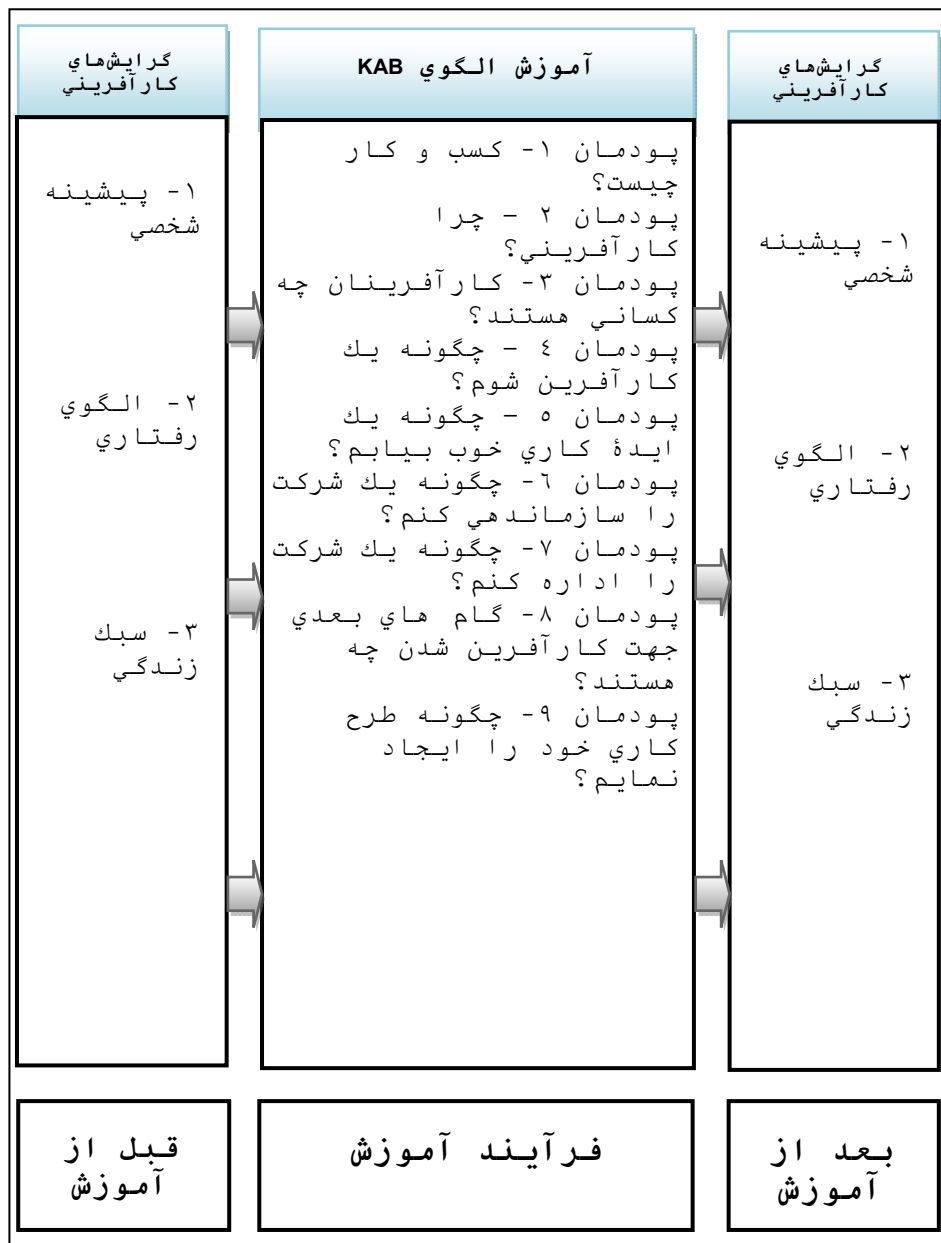 گرايش‌هاي
كارآفريني
۱- پيشينه
شخصي
۲- الگوي
رفتاري
۳- سبك
زندگي
قبل از
آموزش
آموزش الگوي KAB
پودمان ۱- كسب و كار
چيست؟
پودمان ۲ – چرا
كارآفريني؟
پودمان ۳- كارآفرينان چه
كساني هستند؟
پودمان ٤ – چگونه يك
كارآفرين شوم؟
پودمان ٥ – چگونه يك
ايدۀ كاري خوب بيابم؟
پودمان ٦- چگونه يك شركت
را سازماندهي كنم؟
پودمان ۷- چگونه يك شركت
را اداره كنم؟
پودمان ۸- گام هاي بعدي
جهت كارآفرين شدن چه
هستند؟
پودمان ۹- چگونه طرح
كاري خود را ايجاد
نمايم؟
فرآيند آموزش
گرايش‌هاي
كارآفريني
۱- پيشينه
شخصي
۲- الگوي
رفتاري
۳- سبك
زندگي
بعد از
آموزش